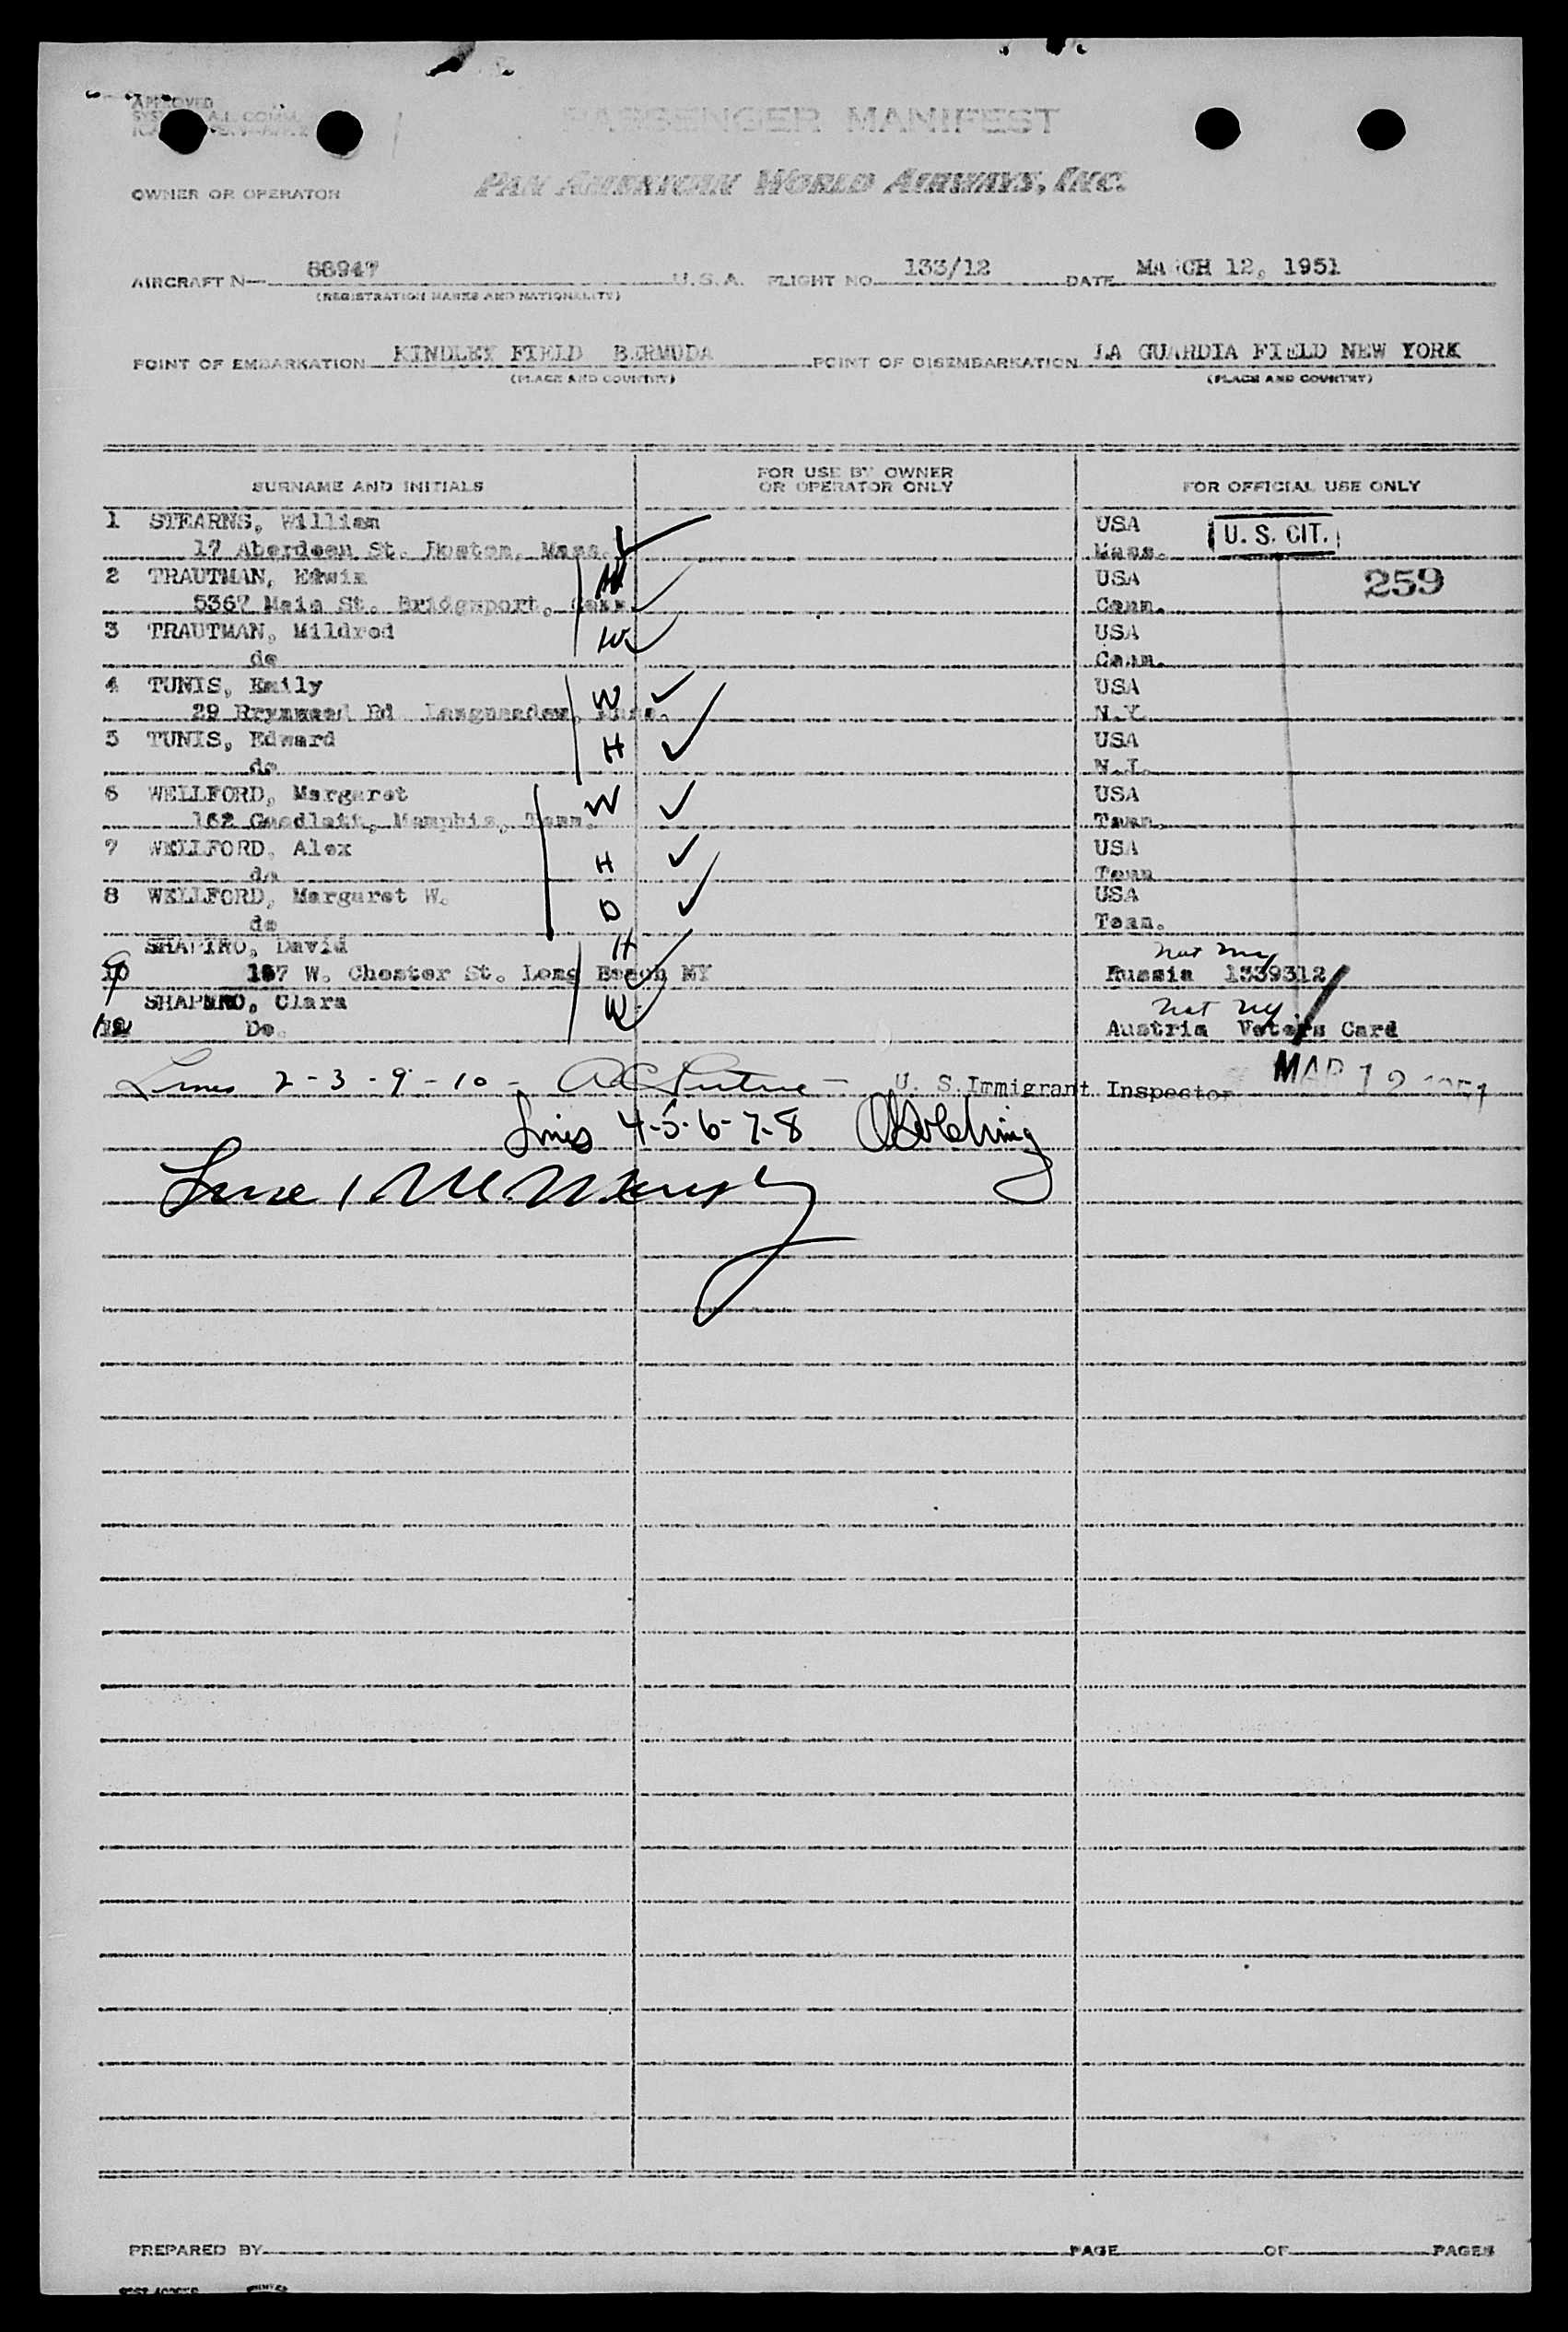 APPROVED
PASSENGER MANIFEST
OWNER OR OPERATOR PAN AMERICAN WORLD AIRWAYS, INC.
AIRCRAFT N— 88947 U.S.A. FLIGHT NO. 133/12 DATE MARCH 12, 1951
(REGISTRATION MARKS AND NATIONALITY)
POINT OF EMBARKATION KINDLEY FIELD BERMUDA POINT OF DISEMBARKATION LA GUARDIA FIELD NEW YORK
(PLACE AND COUNTRY) (PLACE AND COUNTRY)
SURNAME AND INITIALS FOR USE BY OWNER OR OPERATOR ONLY FOR OFFICIAL USE ONLY
1 STEARNS, William USA U. S. CIT.
17 Aberdeen St. Boston, Mass. Mass.
2 TRAUTMAN, Edwin H USA 259
5367 Main St. Bridgeport, Conn. Conn.
3 TRAUTMAN, Mildred W USA
do Conn.
4 TUNIS, Emily W USA
29 Rd Longmeadow, Mass. N.Y.
5 TUNIS, Edward H USA
do N.J.
6 WELLFORD, Margaret W USA
162 Goodlett, Memphis, Tenn. Tenn.
7 WELLFORD, Alex H USA
do Tenn
8 WELLFORD, Margaret W. D USA
do Tenn.
SHAPIRO, David H Nat NY
9 10 157 W. Chester St. Long Beach NY Russia 1339312
SHAPIRO, Clara W Nat NY
10 Do. Austria Voters Card
Lines 2-3-9-10- U. S. Immigrant Inspector MAR 12 1951
Lines 4-5-6-7-8
Line 1
PREPARED BY PAGE OF PAGES